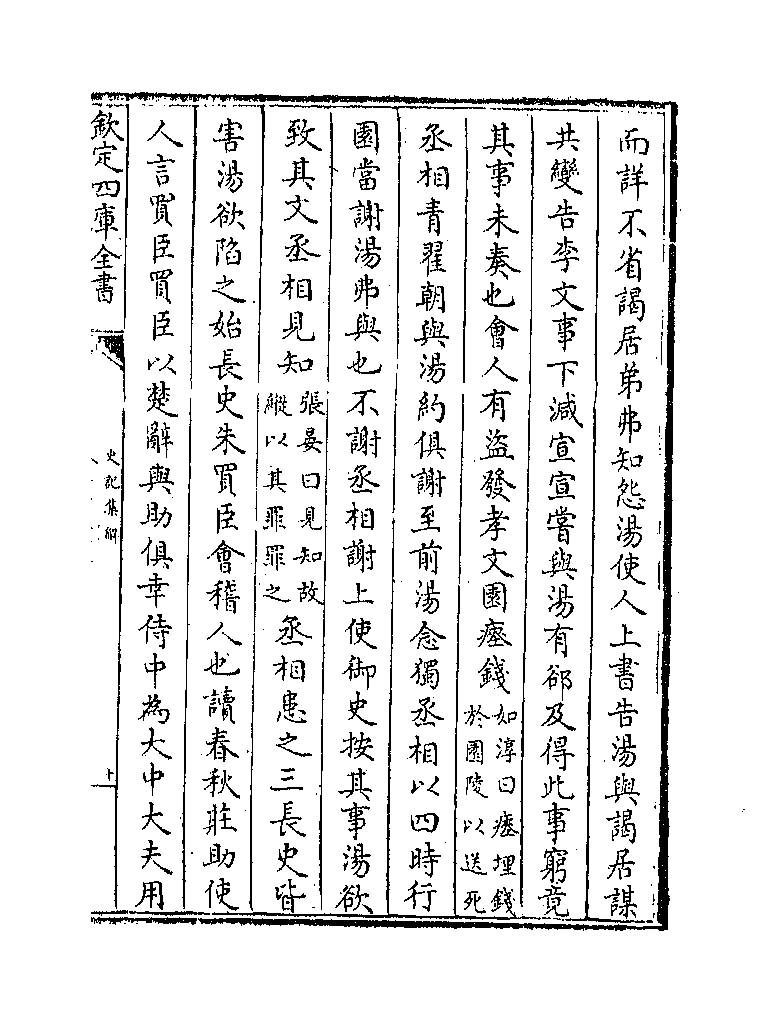 而詳不省謁居弟弗知怨湯使人上書告湯與謁居謀
共變告李文事下減宣宣嘗與湯有郤及得此事窮竟
其事未奏也會人有盜發孝文園瘞錢如淳曰瘞埋錢於園陵以送死
丞相青翟朝與湯約俱謝至前湯念獨丞相以四時行
園當謝湯弗與也不謝丞相謝上使御史按其事湯欲
致其文丞相見知張晏曰見知故縱以其罪罪之丞相患之三長史皆
害湯欲陷之始長史朱買臣會稽人也讀春秋莊助使
人言買臣買臣以楚辭與助俱幸侍中為大中大夫用
欽定四庫全書
史記集解
十